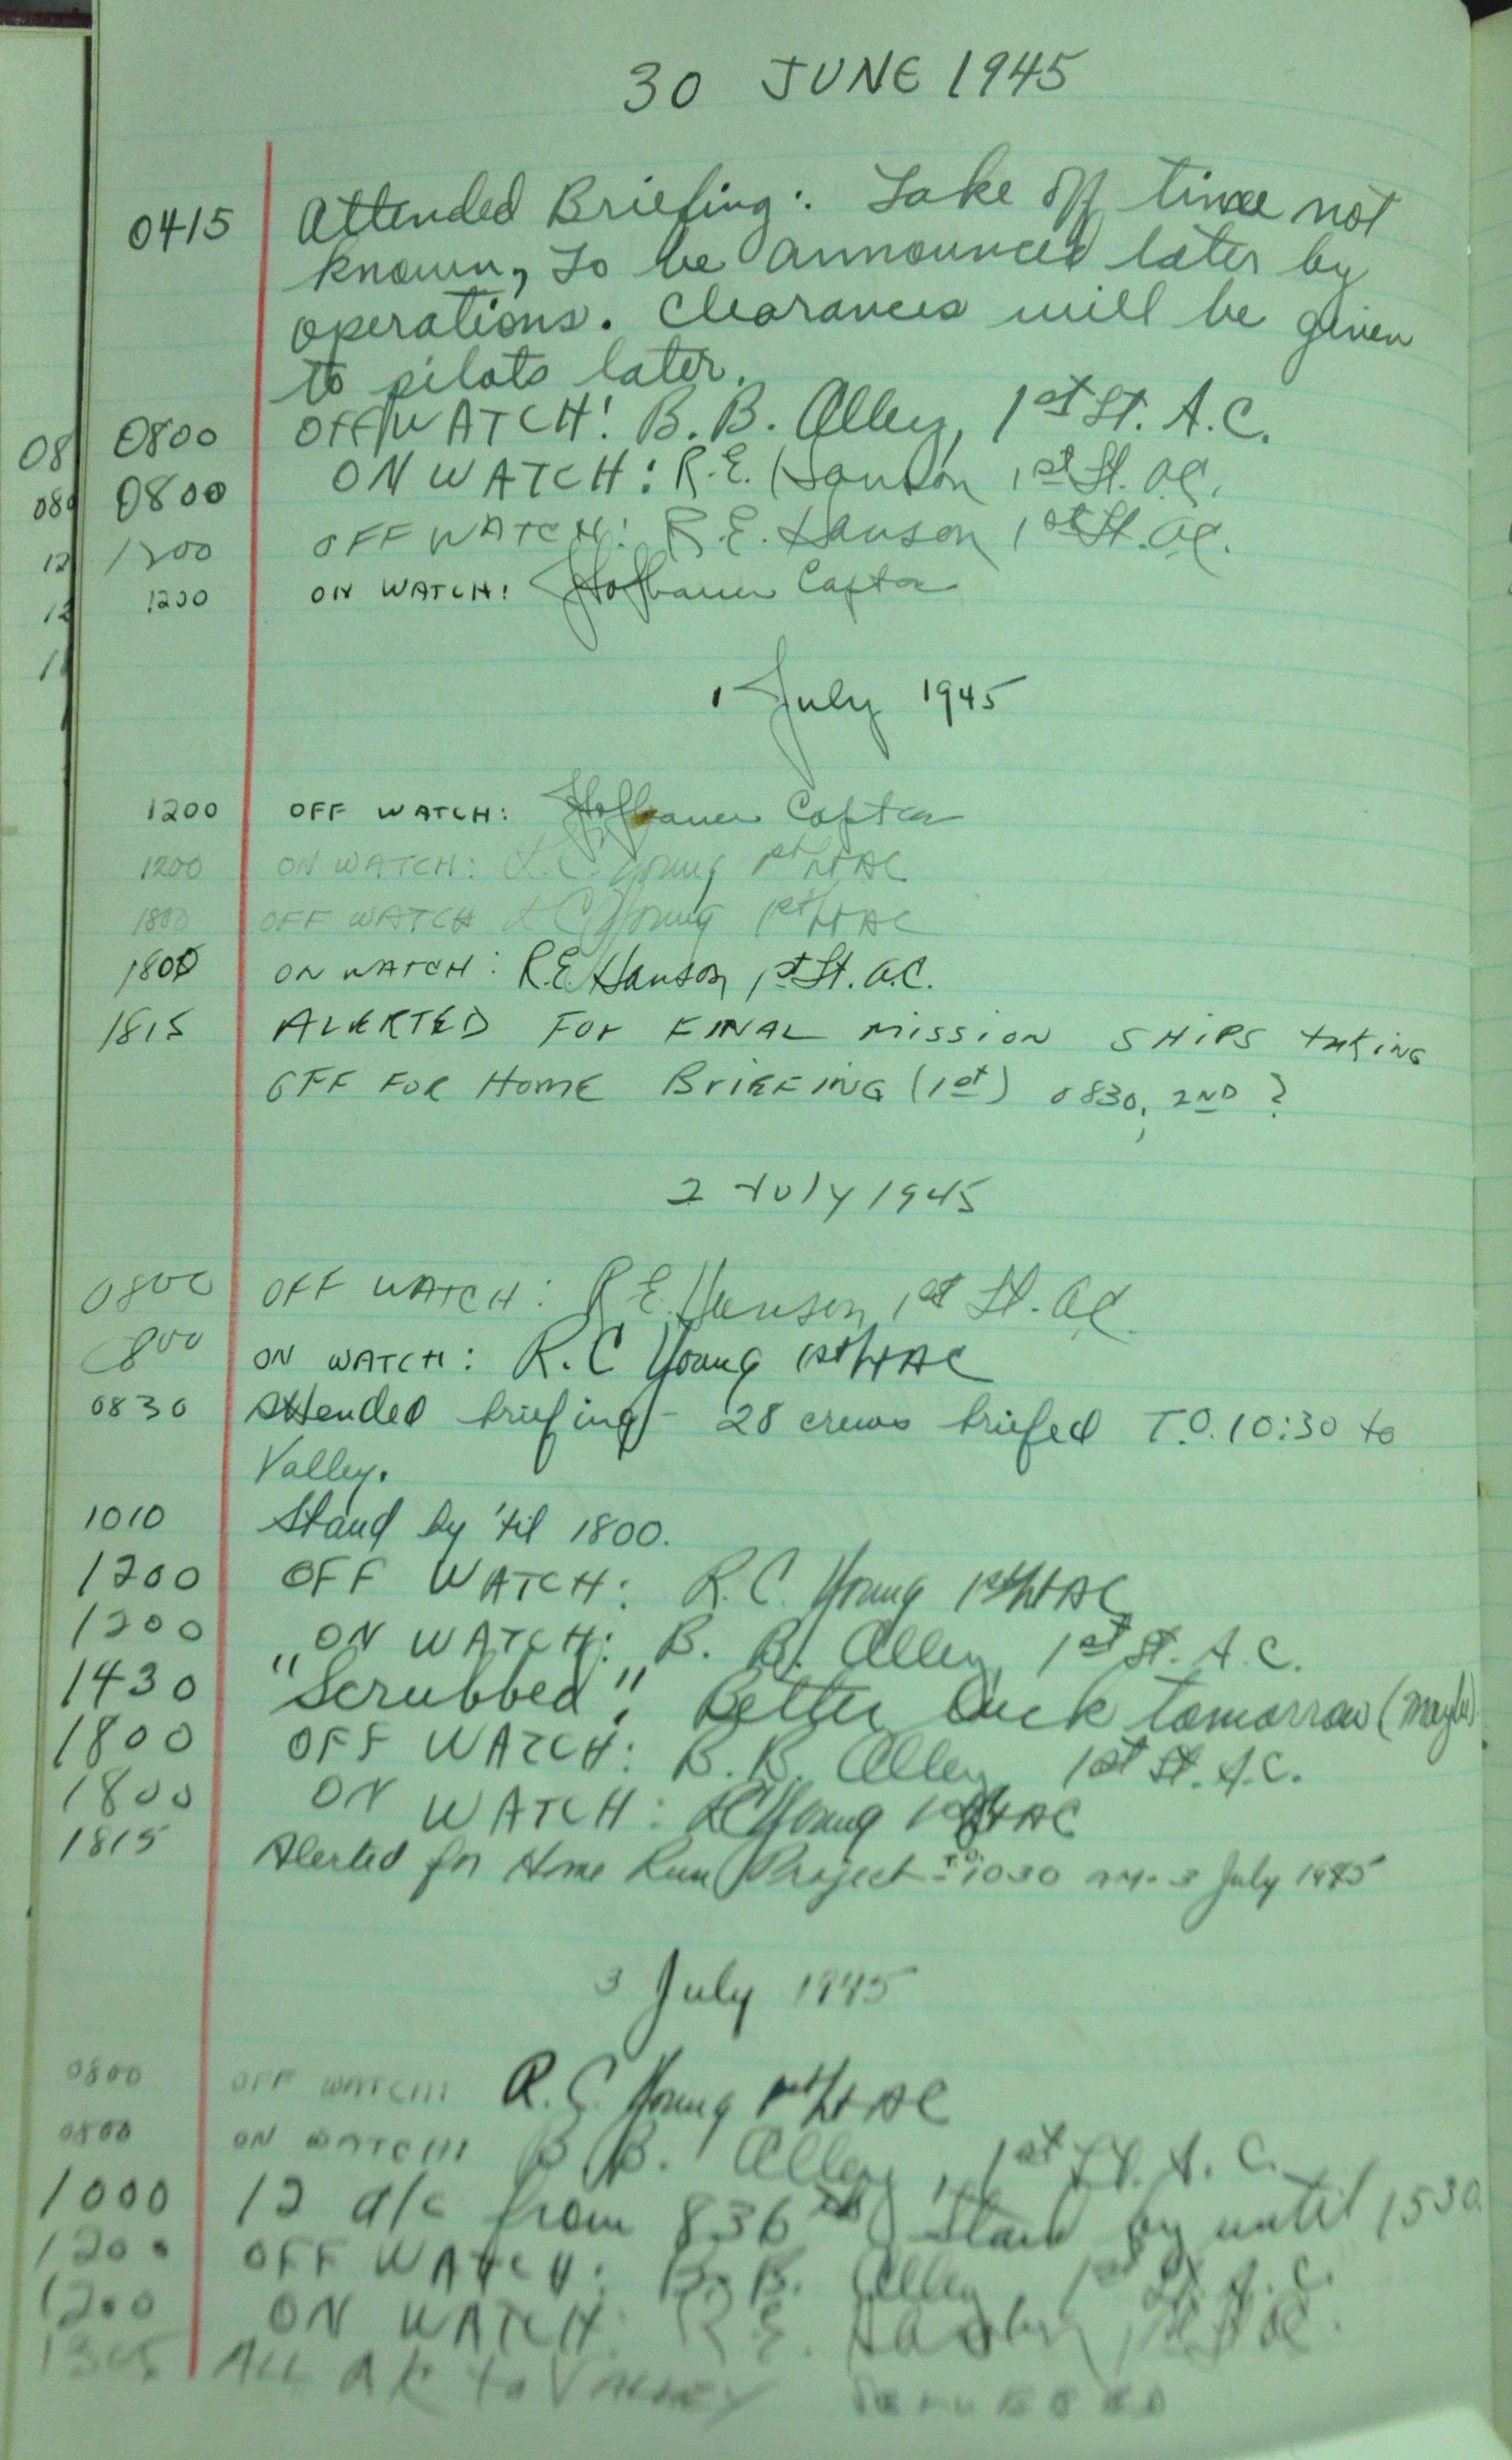 30 JUNE 1945
0415 Attended Briefing: Take off time not
known, To be announced later by
operations. Clearances will be given
to pilots later.
08 0800 OFF WATCH: B. B. Alley, 1st Lt. A.C.
080 0800 ON WATCH: R.E. Hanson 1st Lt. A.C.
12 1200 OFF WATCH: R.E. Hanson 1st Lt. A.C.
12 1200 ON WATCH: Hofbauer Capt ac
1 July 1945
1200 OFF WATCH: Hofbauer Capt ac
1200 ON WATCH: R.C. Young 1st Lt AC
1800 OFF WATCH R C Young 1st Lt AC
1800 ON WATCH: R.E. Hanson 1st Lt. A.C.
1815 ALERTED FOR FINAL MISSION SHIPS TAKING
OFF FOR HOME BRIEFING (1st) 0830, 2ND ?
2 July 1945
0800 OFF WATCH: R E. Hanson 1st Lt. AC.
0800 ON WATCH: R.C Young 1st Lt AC
0830 Attended briefing - 28 crews briefed T.O. 10:30 to
Valley.
1010 Stand by 'til 1800.
1200 OFF WATCH: R.C. Young 1st Lt AC
1200 ON WATCH: B. B. Alley, 1st Lt. A.C.
1430 "Scrubbed". Better luck tomorrow (maybe)
1800 OFF WATCH: B. B. Alley 1st Lt. A.C.
1800 ON WATCH: RC Young 1st Lt AC
1815 Alerted for Home Run Project - T.O. 1030 3 July 1945
3 July 1945
0800 OFF WATCH: R.C. Young 1st Lt AC
0800 ON WATCH: B B. Alley, 1st Lt. A.C.
1000 12 a/c from 836th Stand by until 1530.
1200 OFF WATCH: B. B. Alley 1st Lt. A.C.
1200 ON WATCH: R.E. Hanson 1st Lt AC.
1305 ALL A/C to VALLEY SCRUBBED